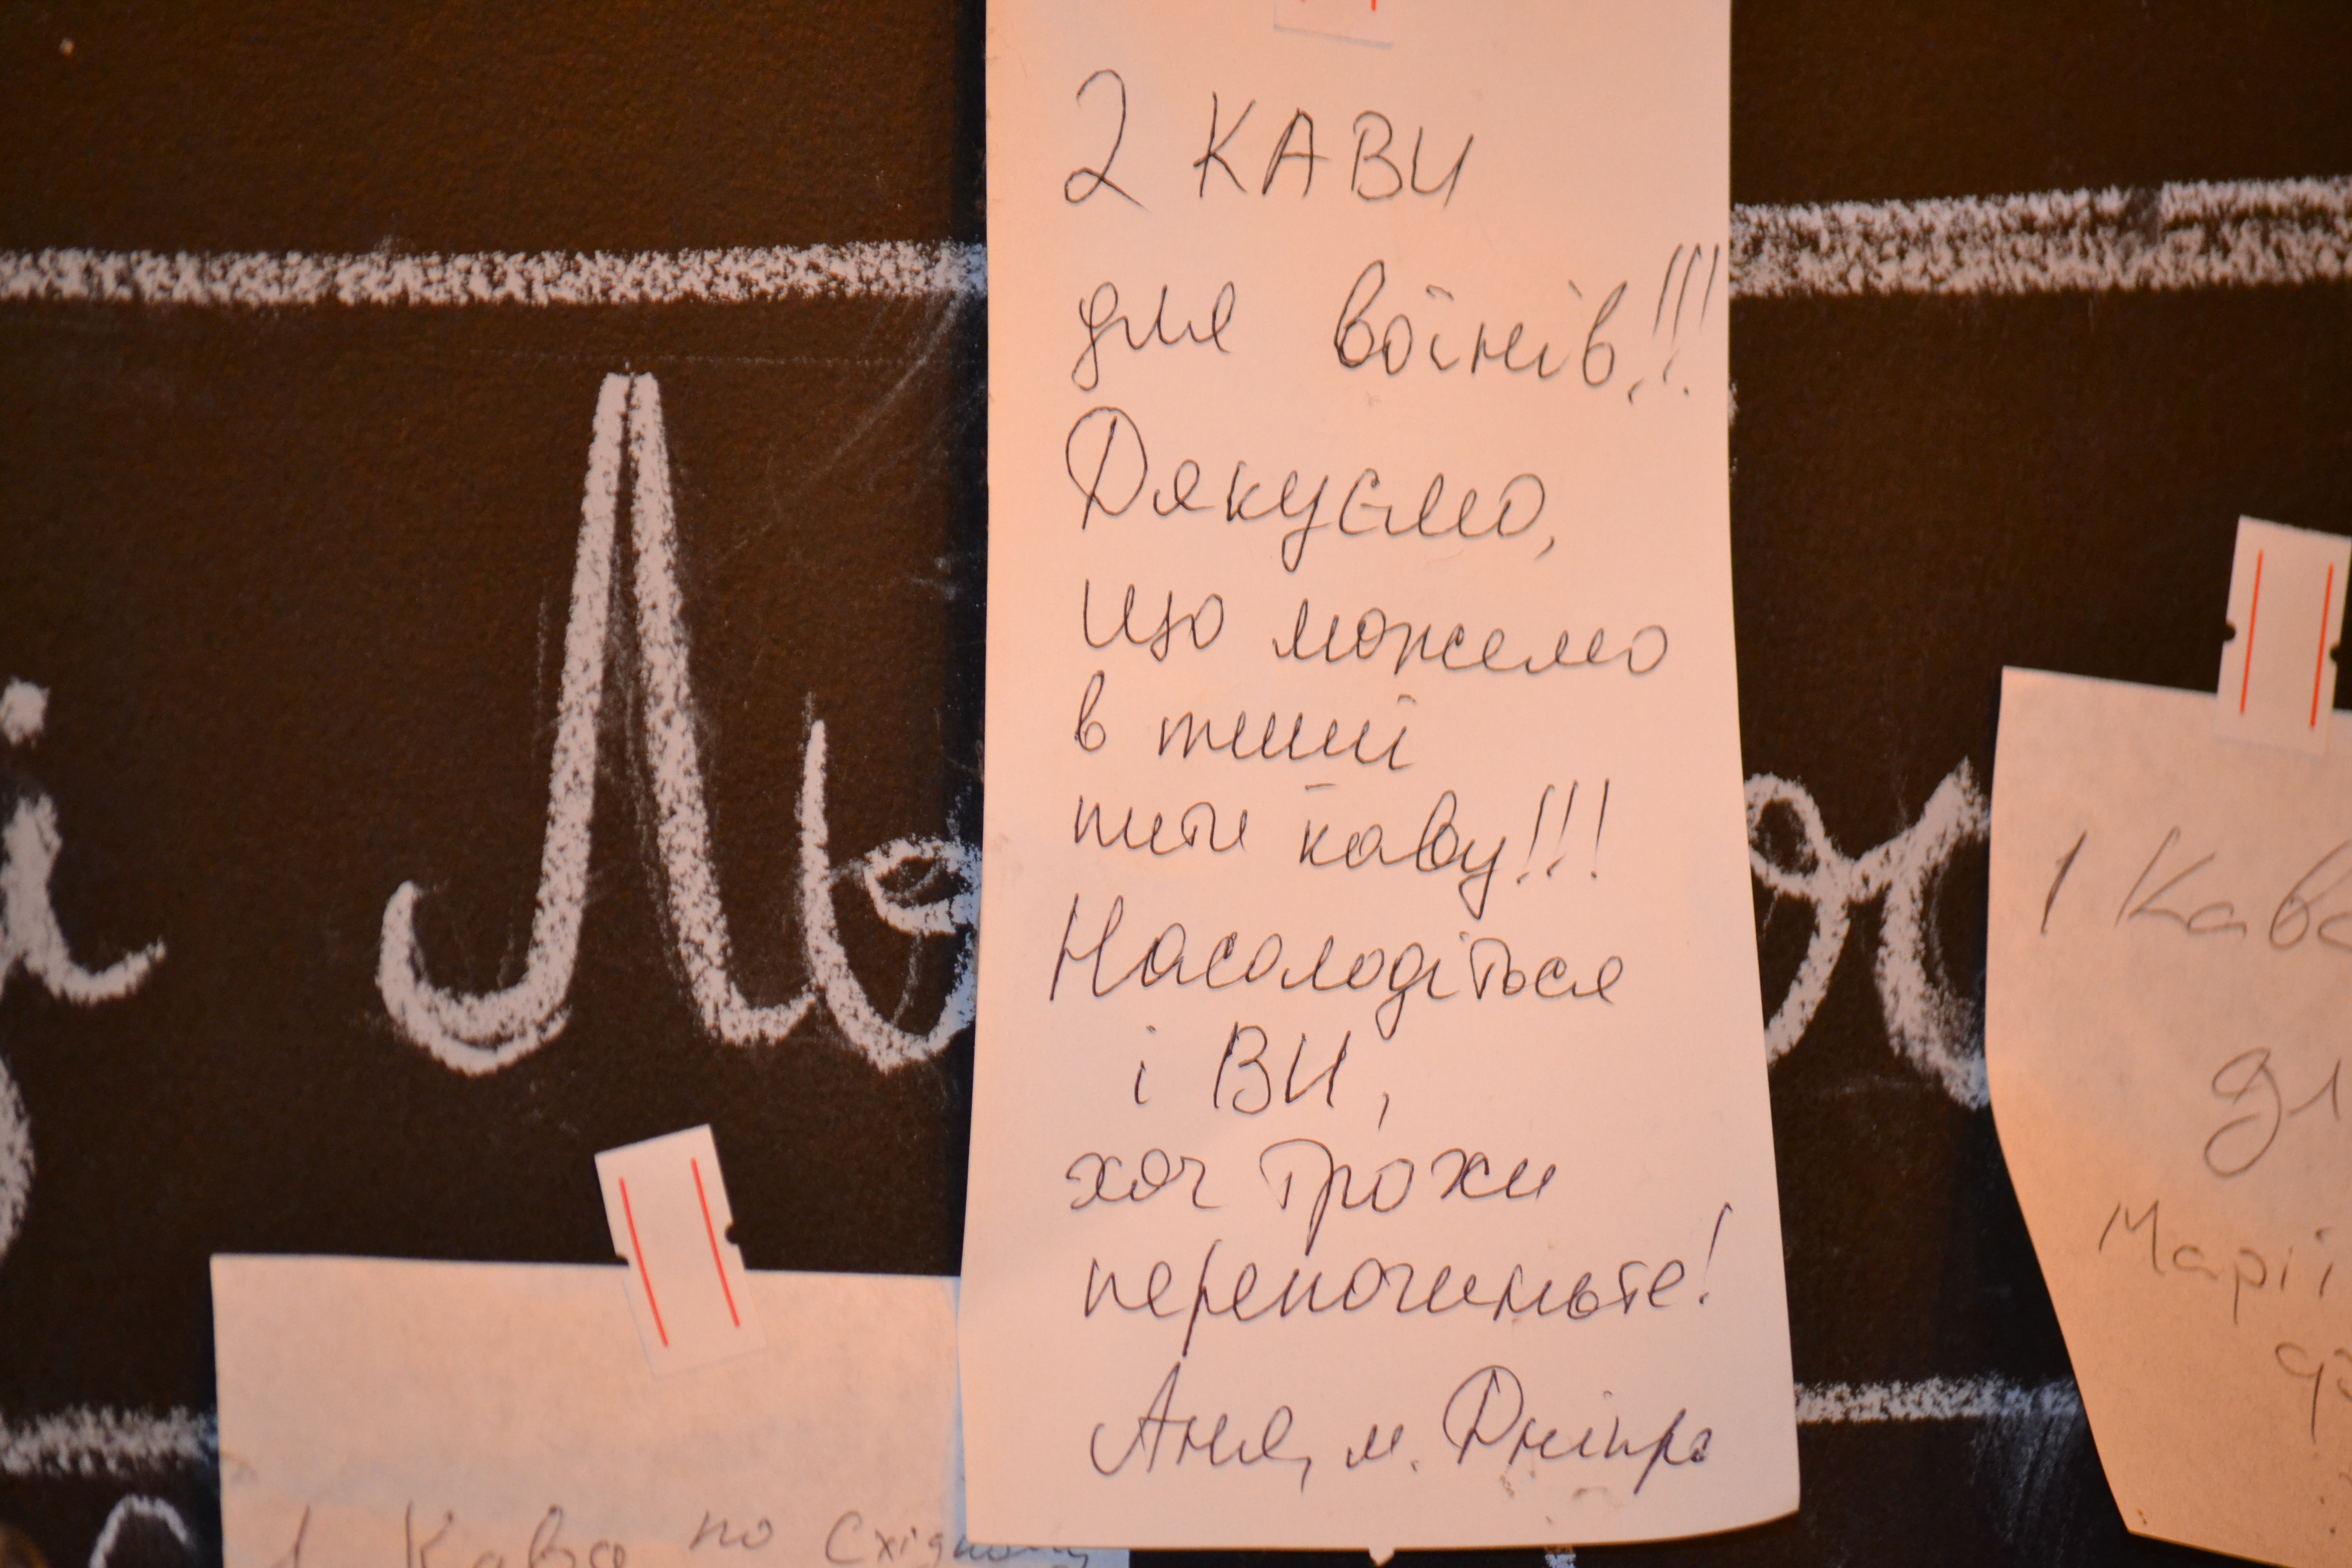 2 КАВИ
для воїнів!!!
Дякуємо,
що можемо
в тиші
пити каву!!!
Насолодіться
і ВИ,
хоч трохи
перепочиньте!
Аня, м. Дніпро
1 Кава
Марії
1 Кава по східному